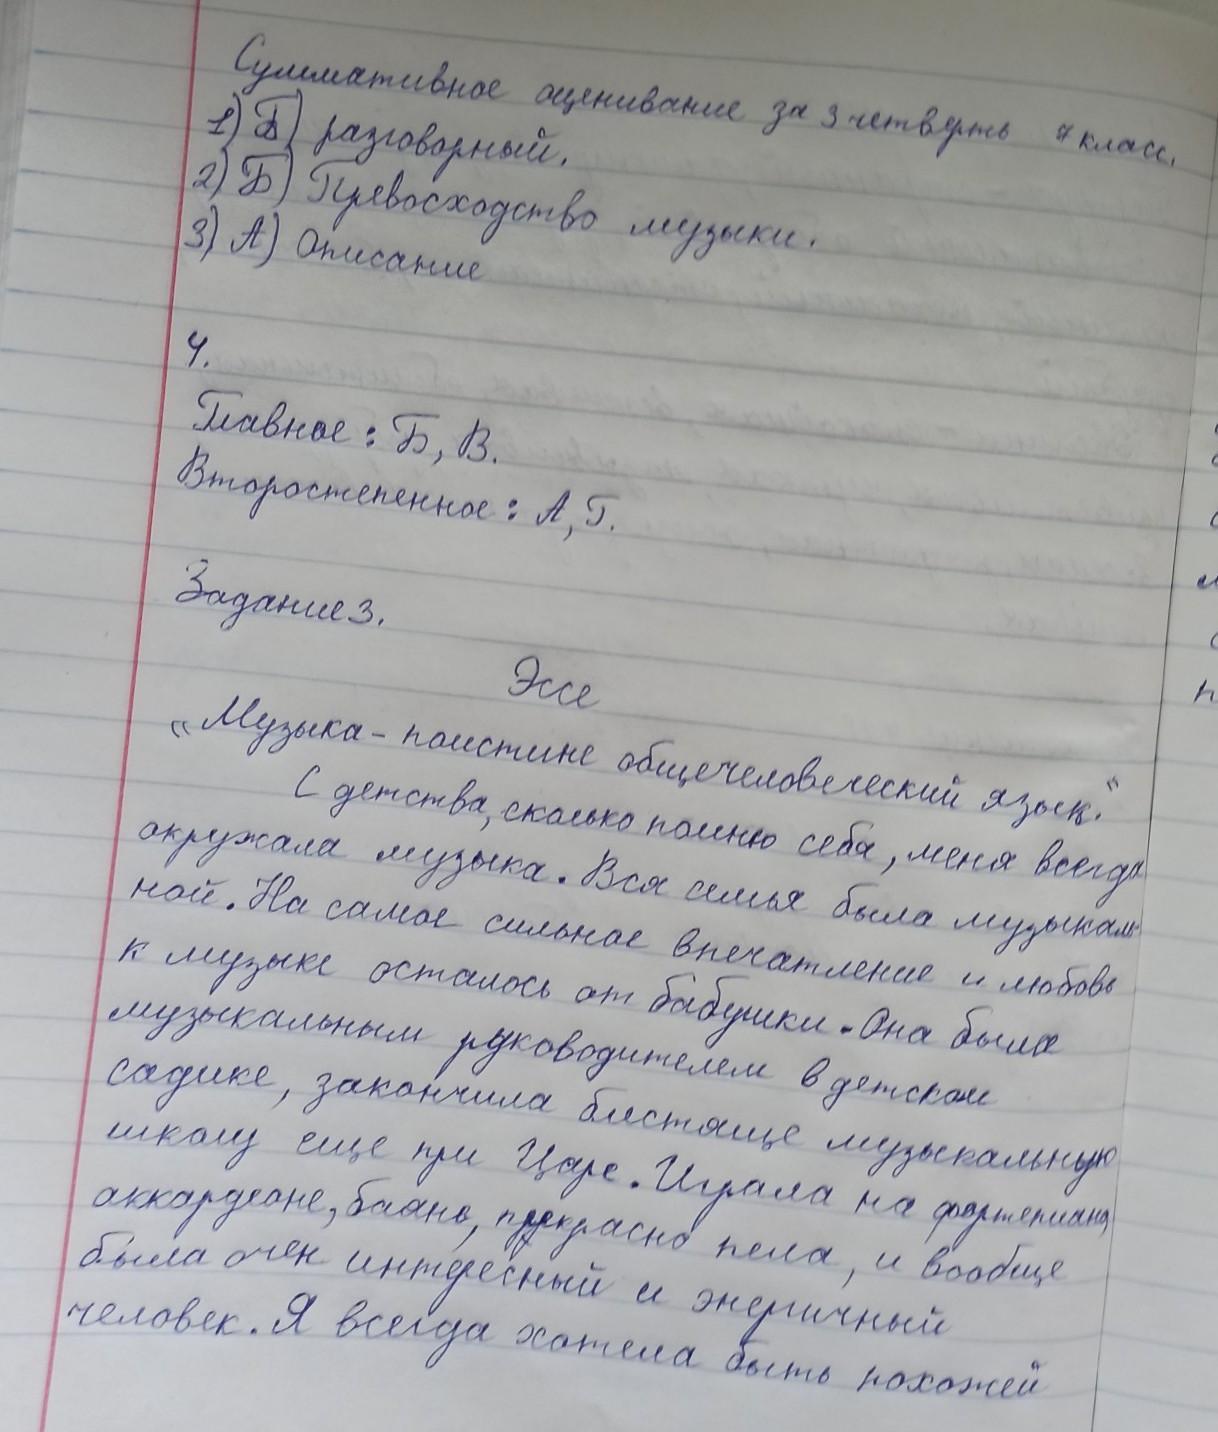 Суммативное оценивание за 3 четверть 7 класс.
1) Б) разговорный.
2) Б) Превосходство музыки.
3) А) Описание
4.
Главное: Б, В.
Второстепенное: А, Г.
Задание 3.
Эссе
"Музыка - поистине общечеловеческий язык."
С детства, сколько помню себя, меня всегда
окружала музыка. Вся семья была музыкаль-
ной. На самое сильное впечатление и любовь
к музыке осталось от бабушки. Она была
музыкальным руководителем в детском
садике, закончила блестяще музыкальную
школу еще при Царе. Играла на фортепиано,
аккордеоне, баяне, прекрасно пела, и вообще
была очен интересный и энергичный
человек. Я всегда хотела быть похожей